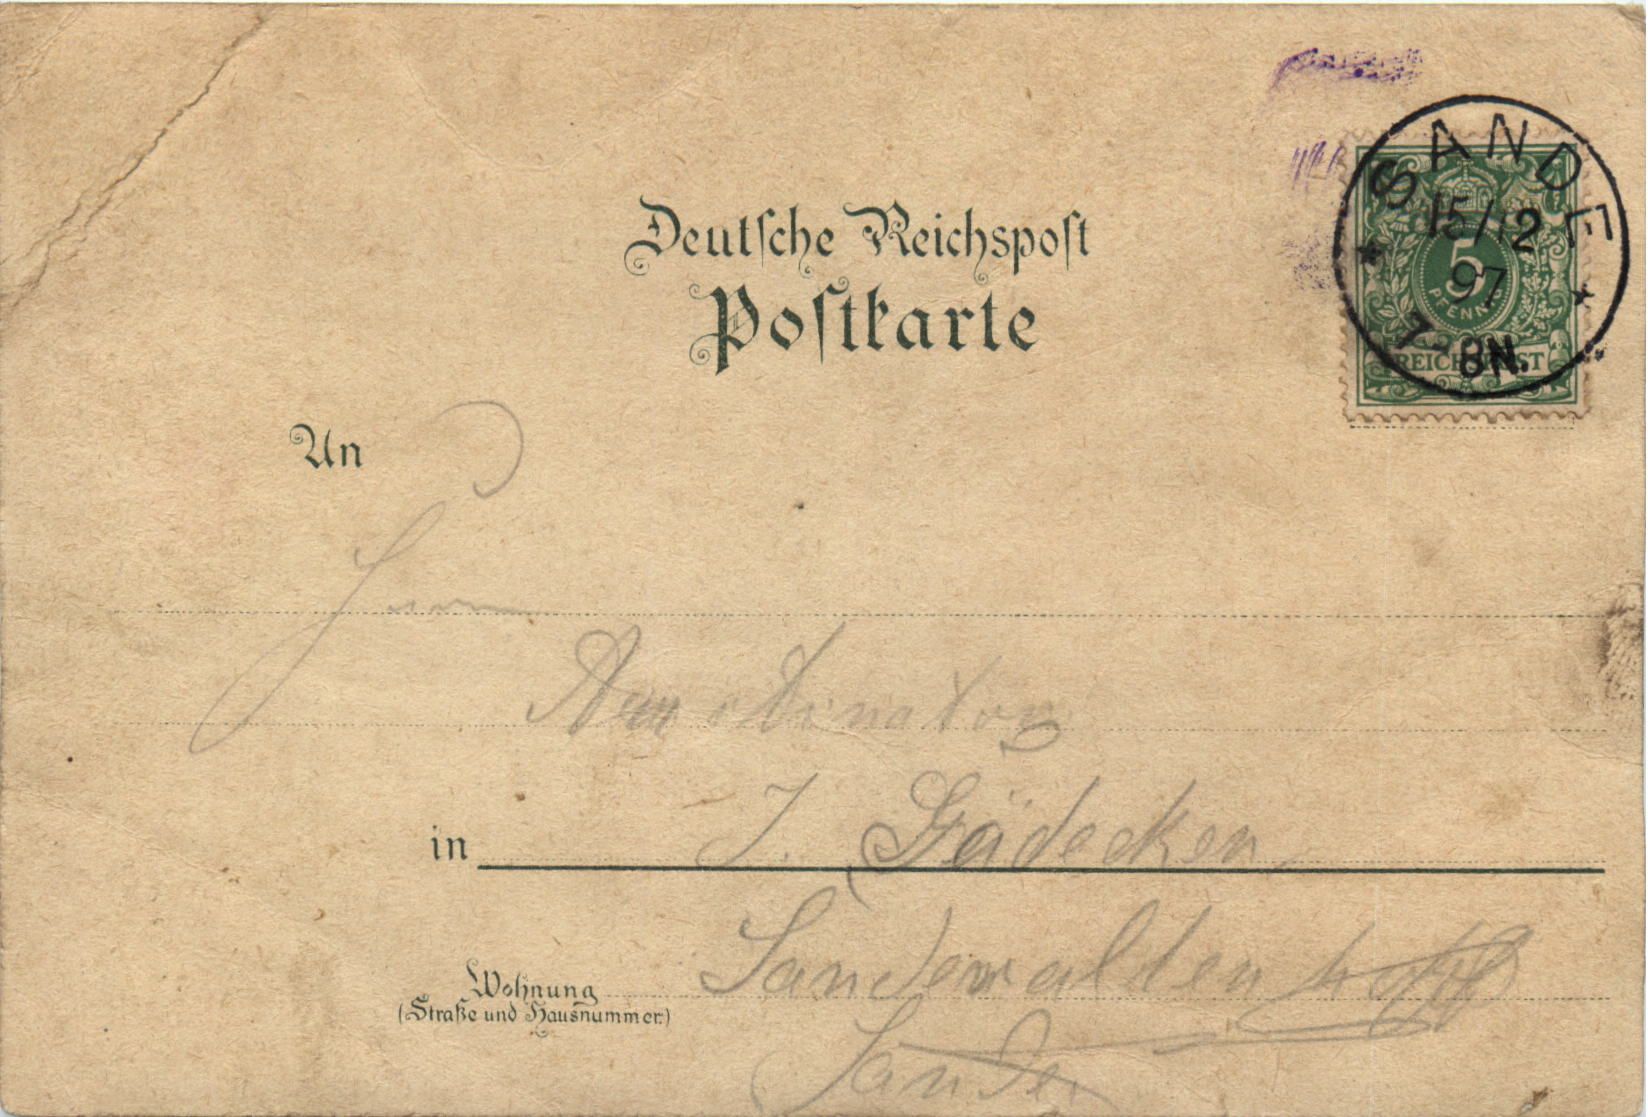 Deutsche Reichspost
Postkarte
SANDE
15/12
97
7-8N.
5
PFENNIG
REICHSPOST
An
Herrn
J. Gädecken
in
Wohnung
(Straße und Hausnummer.)
Sande